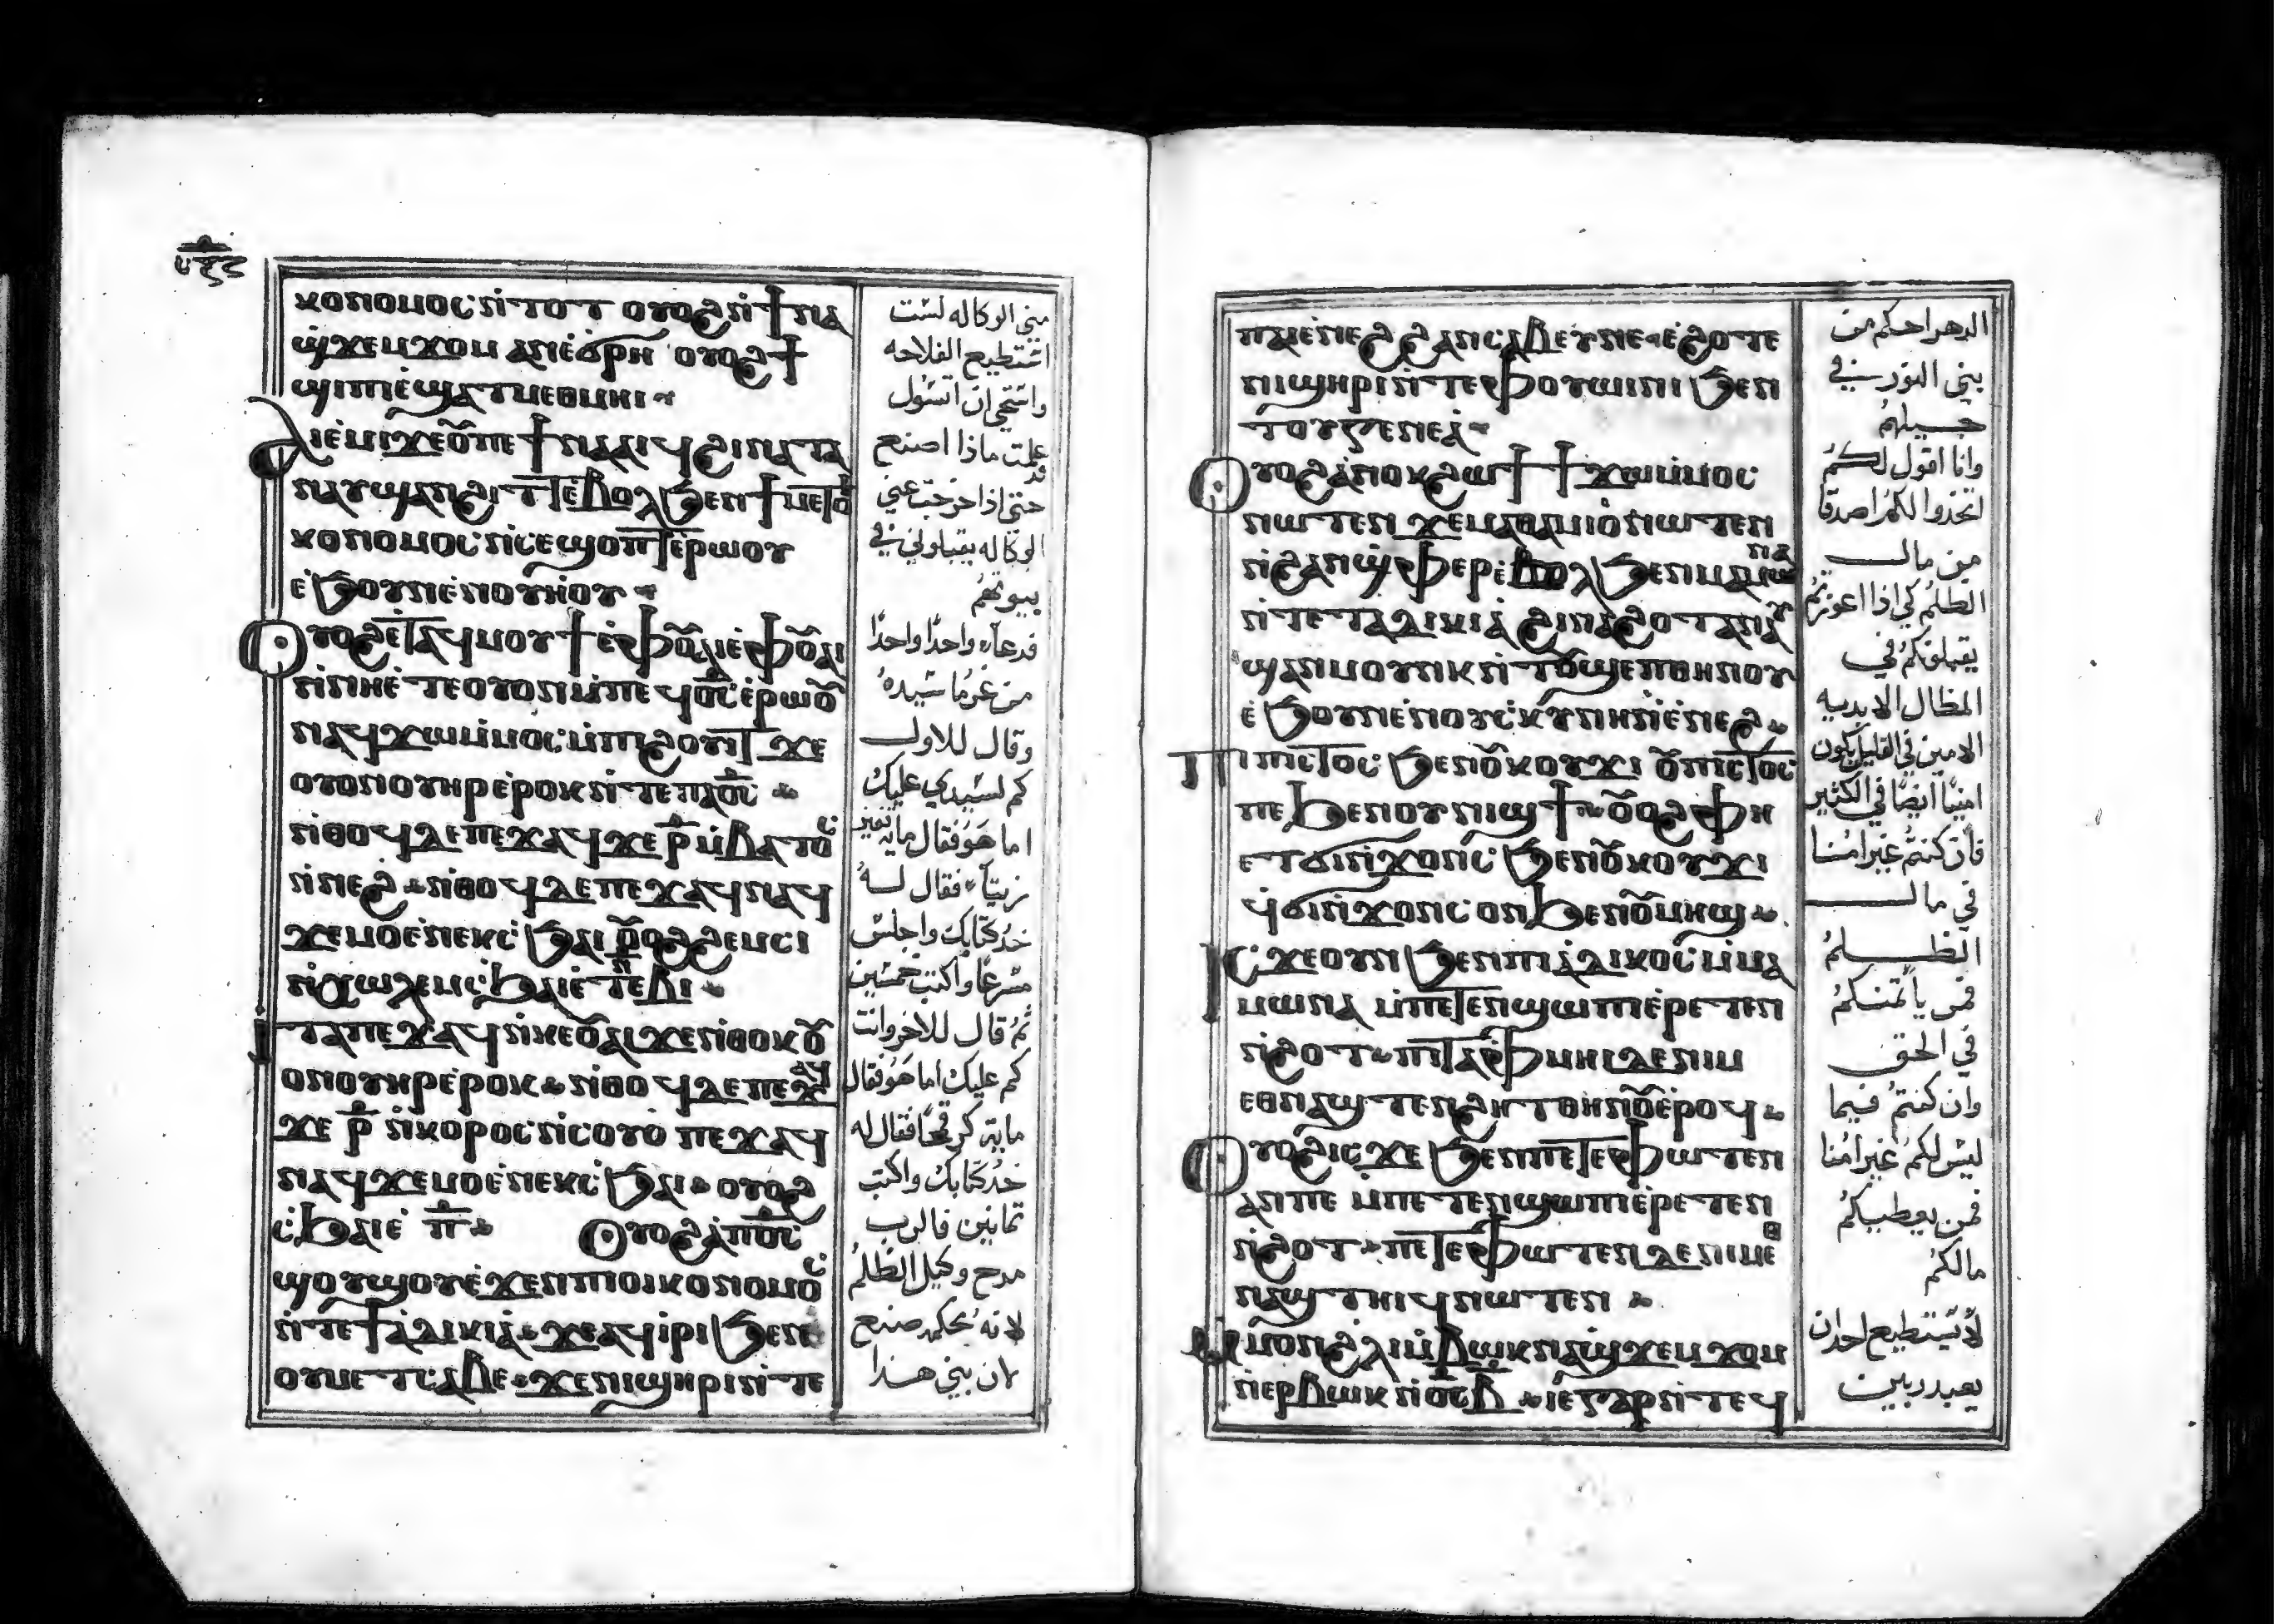 ⲕⲟⲛⲟⲙⲟⲥ ⲛ̀ⲧⲟⲧ ⲟⲩⲟϩ ⲛ̀ϯⲛⲁ
ϣ̀ϫⲉⲙϫⲟⲙ ⲁⲛ ⲉ̀ϭⲣⲏ ⲟⲩⲟϩ ϯ
ϣⲓⲡⲓ ⲉ̀ϣⲁⲧⲙⲉⲑⲛⲏⲓ
ⲁⲓⲉ̀ⲙⲓ ϫⲉ ⲟ̅ⲡⲉϯⲛⲁⲁⲓϥ ϩⲓⲛⲁ ⲧⲁ
ⲛⲁⲩϣⲁⲛϩⲓⲧⲧ ⲉ̀ⲃⲟⲗ ϧⲉⲛ ϯⲙⲉⲧⲟ̅
ⲕⲟⲛⲟⲙⲟⲥ ⲛ̀ⲥⲉϣⲟⲡⲧ ⲉ̀ⲣⲱⲟⲩ
ⲉ̀ϧⲟⲩⲛ ⲉ̀ⲛⲟⲩⲏⲟⲩ
ⲟⲩⲟϩ ⲉ̀ⲧⲁϥⲙⲟⲩϯ ⲉ̀ⲫⲟ̅ⲁⲓ ⲉ̀ⲫⲟ̅ⲁⲓ
ⲛ̀ⲛⲏ ⲉ̀ⲧⲉⲟⲩⲟⲛ ⲛ̀ⲧⲉ ⲡⲉϥⲟ̅ⲥ̅ ⲉ̀ⲣⲱⲟ̅
ⲛⲁϥϫⲱ ⲙ̀ⲙⲟⲥ ⲙ̀ⲡⲓϩⲟⲩⲓⲧ ϫⲉ
ⲟⲩⲟⲛⲟⲩⲏⲣ ⲉ̀ⲣⲟⲕ ⲛ̀ⲧⲉ ⲡⲁⲟ̅ⲥ̅
ⲛ̀ⲑⲟϥ ⲇⲉ ⲡⲉϫⲁϥ ϫⲉ ⲣ̅ ⲙ̀ⲃⲁⲧⲟⲥ
ⲛ̀ⲛⲉϩ ⲛ̀ⲑⲟϥ ⲇⲉ ⲡⲉϫⲁϥ ⲛⲁϥ
ϫⲉ ⲙⲟ ⲉ̀ⲛⲉⲕⲥ̀ϧⲁⲓ ⲟ̅ⲟϩ ϩⲉⲙⲥⲓ
ⲛ̀ⲭⲱⲗⲉⲙ ⲥ̀ϧⲁⲓ ⲉ̀ ⲧⲉⲃⲓ
ⲓⲧⲁ ⲡⲉϫⲁϥ ⲛ̀ⲕⲉⲟ̅ⲁⲓ ϫⲉ ⲛ̀ⲑⲟⲕ ⲟ̅
ⲟⲛⲟⲩⲏⲣ ⲉ̀ⲣⲟⲕ ⲛ̀ⲑⲟϥ ⲇⲉ ⲡⲉϫⲁϥ
ϫⲉ ⲣ̅ ⲛ̀ⲕⲟⲣⲟⲥ ⲛ̀ⲥⲟⲩⲟ ⲡⲉϫⲁϥ
ⲛⲁϥ ϫⲉ ⲙⲟ ⲉ̀ⲛⲉⲕⲥ̀ϧⲁⲓ ⲟⲩⲟϩ
ⲥ̀ϧⲁⲓ ⲉ̀ ⲡ̅ ⲟⲩⲟϩ ⲁ̀ⲡⲟ̅ⲥ̅
ϣⲟⲩϣⲟⲩ ⲉ̀ϫⲉⲛ ⲡⲓⲟⲓⲕⲟⲛⲟⲙⲟⲥ
ⲛ̀ⲧⲉ ϯⲁ̀ⲇⲓⲕⲓⲁ̀ ϫⲉ ⲁϥⲓ̀ⲣⲓ ϧⲉⲛ
ⲟⲩⲙⲉⲧⲥⲁⲃⲉ ϫⲉ ⲛⲓϣⲏⲣⲓ ⲛ̀ⲧⲉ
مني الوكاله لست
استطيع الفلاحه
واستحي ان اتسول
قد علمت ماذا اصنع
حتى اذا خرجت عني
الوكاله يقبلوني في
بيوتهم
فدعاه واحدًا واحدًا
من غرما سيده
وقال للاول
كم لسيدي عليك
اما هو فقال مايه قفيز
زيتًا فقال له
خذ كتابك واجلس
مسرعًا واكتب خمسين
ثم قال للاخر وانت
كم عليك اما هو فقال
مايه كر قمحًا فقال له
خذ كتابك واكتب
ثمانين فالرب
مدح وكيل الظلم
لانه بحكمه صنع
لان بني هذا
ⲡⲁⲓⲉ̀ⲛⲉϩ ϩⲁⲛⲥⲁⲃⲉⲩ ⲛⲉ ⲉ̀ϩⲟⲧⲉ
ⲛⲓϣⲏⲣⲓ ⲛ̀ⲧⲉ ⲫⲟⲩⲱⲓⲛⲓ ϧⲉⲛ
ⲧⲟⲩⲅⲉⲛⲉⲁ̀
ⲟⲩⲟϩ ⲁ̀ⲛⲟⲕ ϩⲱϯ ϯϫⲱ ⲙ̀ⲙⲟⲥ
ⲛⲱⲧⲉⲛ ϫⲉ ⲙⲁⲑⲁⲙⲓⲟ̀ ⲛⲱⲧⲉⲛ
ⲛ̀ϩⲁⲛϣ̀ⲫⲉⲣ ⲉ̀ⲃⲟⲗ ϧⲉⲛ ⲙⲁⲙⲱⲛⲁ
ⲛ̀ⲧⲉ ⲧⲁⲇⲓⲕⲓⲁ̀ ϩⲓⲛⲁ ϩⲟⲧⲁⲛ ⲁⲩ
ϣⲁⲛⲙⲟⲩⲛⲕ ⲛ̀ⲧⲟ̅ϣⲉⲡ ⲑⲏⲛⲟⲩ
ⲉ̀ϧⲟⲩⲛ ⲉ̀ⲛⲟⲩⲥⲕⲩⲛⲏ ⲛ̀ⲉ̀ⲛⲉϩ
ⲡⲓⲡⲓⲥⲧⲟⲥ ϧⲉⲛ ⲟ̅ⲕⲟⲩϫⲓ ⲟ̅ⲡⲓⲥⲧⲟⲥ
ⲡⲉ ϧⲉⲛ ⲟⲩⲛⲓϣϯ ⲟ̅ⲟϩ ⲫⲏ
ⲉⲧϭⲓⲛϫⲟⲛⲥ ϧⲉⲛ ⲟ̅ⲕⲟⲩϫⲓ
ϥϭⲓⲛϫⲟⲛⲥ ⲟⲛ ϧⲉⲛ ⲟ̅ⲙⲏϣ
ⲓⲥϫⲉ ⲟⲩⲛ ϧⲉⲛ ⲡⲓⲁⲇⲓⲕⲟⲥ ⲙ̀ⲙⲁ
ⲙⲱⲛⲁ ⲙ̀ⲡⲉⲧⲉⲛϣⲱⲡⲓ ⲉ̀ⲣⲉⲧⲉⲛ
ⲛ̀ϩⲟⲧ ⲡⲓⲧⲁⲫⲙⲏⲓ ⲇⲉ ⲛⲓⲙ
ⲉⲑⲛⲁϣⲧⲉⲛϩⲏⲧ ⲑⲏⲛⲟ̅ ⲉ̀ⲣⲟϥ
ⲟⲩⲟϩ ⲓⲥϫⲉ ϧⲉⲛ ⲡⲉⲧⲉⲫⲱⲧⲉⲛ
ⲁⲛ ⲡⲉ ⲙ̀ⲡⲉⲧⲉⲛϣⲱⲡⲓ ⲉ̀ⲣⲉⲧⲉⲛ
ⲛ̀ϩⲟⲧ ⲡⲉⲧⲉⲫⲱⲧⲉⲛ ⲇⲉ ⲛⲓⲙ ⲉⲑ
ⲛⲁϣⲧⲏⲓϥ ⲛⲱⲧⲉⲛ
ⲙ̀ⲙⲟⲛ ϩⲗⲓ ⲙ̀ⲃⲱⲕ ⲛⲁϣ̀ϫⲉⲙϫⲟⲙ
ⲛ̀ⲉⲣⲃⲱⲕ ⲛ̀ⲟ̅ⲥ̅ ⲃ̅ ⲓⲉ ⲅⲁⲣ ⲛ̀ⲧⲉϥ
الدهر احكم من
بني النور في
جيلهم
وانا اقول لكم
اتخذوا لكم اصدقا
من مال
الظلم كي اذا اعوزتم
يقبلونكم في
المظال الابديه
الامين في القليل يكون
امينًا ايضًا في الكثير
فان كنتم غير امنا
في مال
الظلم
فمن ياتمنكم
في الحق
وان كنتم فيما
ليس لكم غير امنا
فمن يعطيكم
مالكم
لا يستطيع احد ان
يعبد ربين